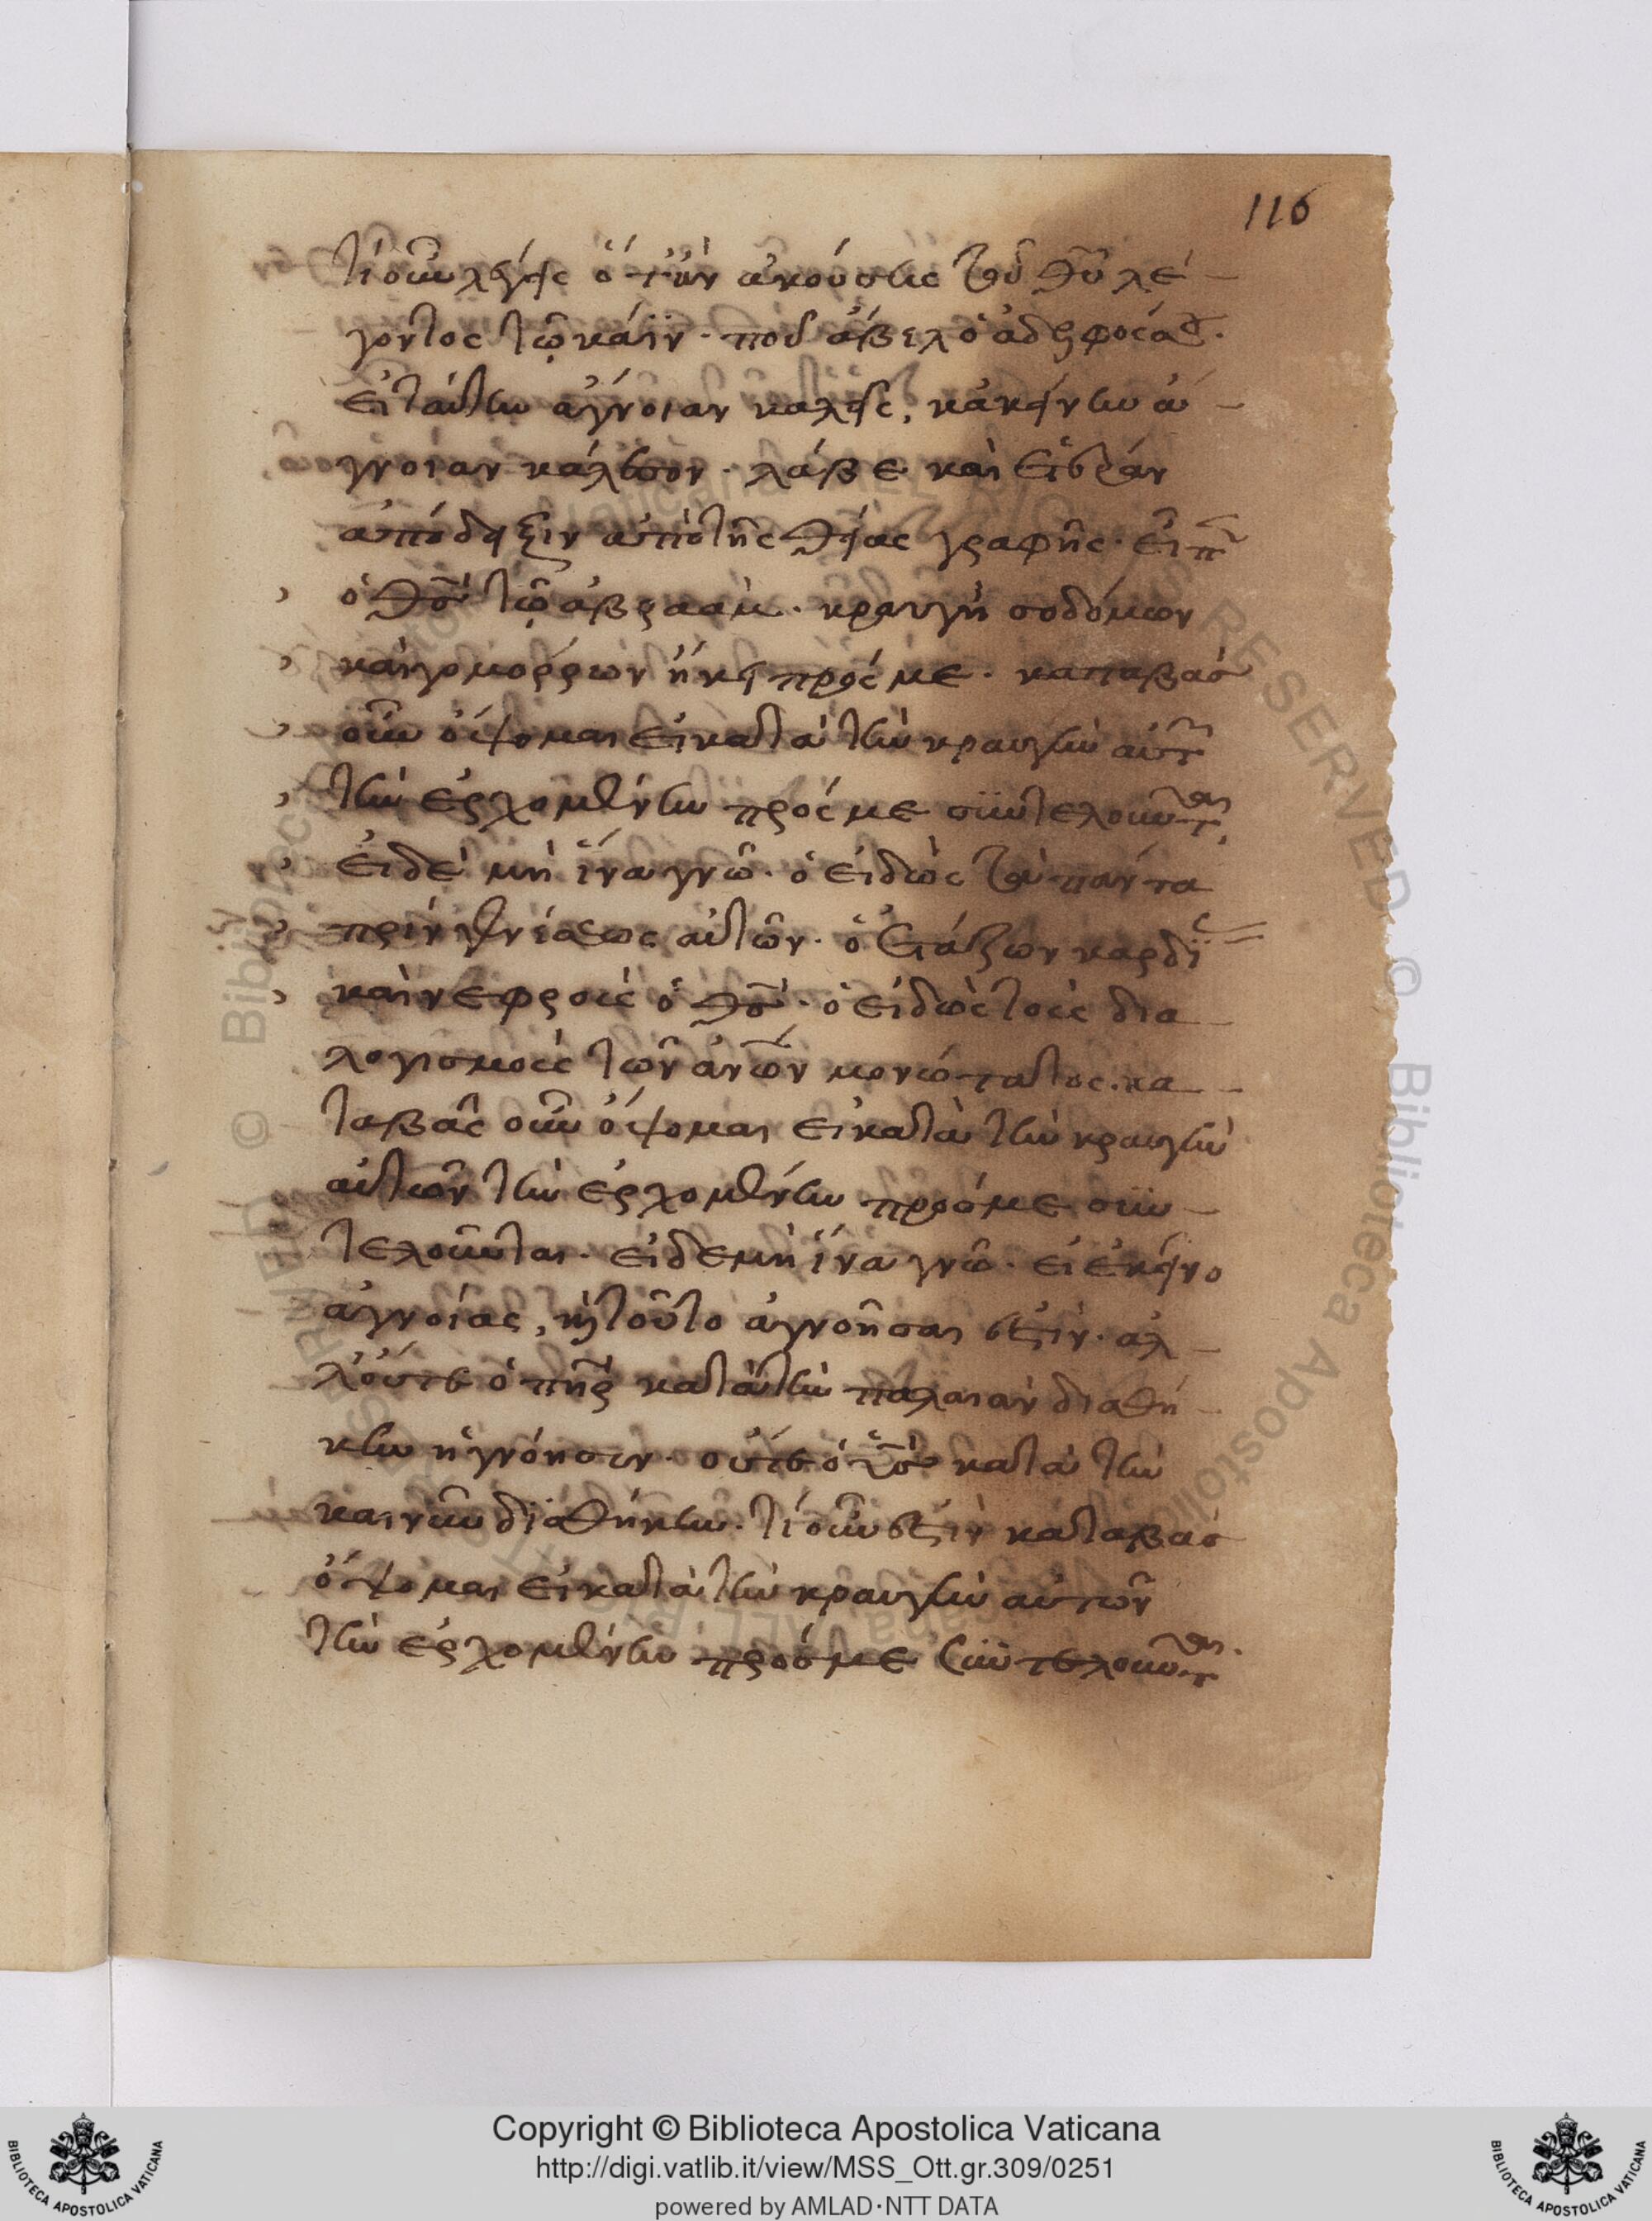 116
τί οὖν λέγεις ὅταν ἀκούσεις τοῦ θῦ λέ-
γοντος τῷ κάϊν· ποῦ ἄβελ ὁ ἀδελφός
εἰ ταύτην ἄγνοιαν καλεῖς, κἀκείνην ἄ-
γνοιαν κάλεσον· λάβε καὶ ἑτέραν
ἀπόδειξιν ἀπὸ τῆς θείας γραφῆς· εἶπ
ὁ θς τῷ ἀβραάμ· κραυγὴ σοδόμων
καὶ γομόρρων ἥκει πρός με· καταβὰς
οὖν ὄψομαι εἰ κατὰ τὴν κραυγὴν αὐτ
τὴν ἐρχομένην πρός με συντελοῦνται
εἰ δὲ μὴ ἵνα γνῶ· ὁ εἰδὼς τὰ πάντα
πρὶν γενέσεως αὐτῶν· ὁ ἐτάζων καρδί
καὶ νεφροὺς ὁ θς· ὁ εἰδὼς τοὺς δια-
λογισμοὺς τῶν ἀνων μονώτατος· κα-
ταβὰς οὖν ὄψομαι εἰ κατὰ τὴν κραυγὴν
αὐτῶν τὴν ἐρχομένην πρός με συν-
τελοῦνται· εἰ δὲ μὴ ἵνα γνῶ· εἰ ἐκεῖνο
ἀγνοίας, καὶ τοῦτο ἀγνοῆσαι ἐστίν· ἀλ-
λ' οὔτε ὁ πηρ κατὰ τὴν παλαιὰν διαθή-
κην ἠγνόησεν· οὔτε ὁ υς κατὰ τὴν
καινὴν διαθήκην· τί οὖν ἐστὶν καταβὰς
ὄψομαι εἰ κατὰ τὴν κραυγὴν αὐτῶν
τὴν ἐρχομένην πρός με συντελοῦνται·
Copyright © Biblioteca Apostolica Vaticana
http://digi.vatlib.it/view/MSS_Ott.gr.309/0251
powered by AMLAD·NTT DATA